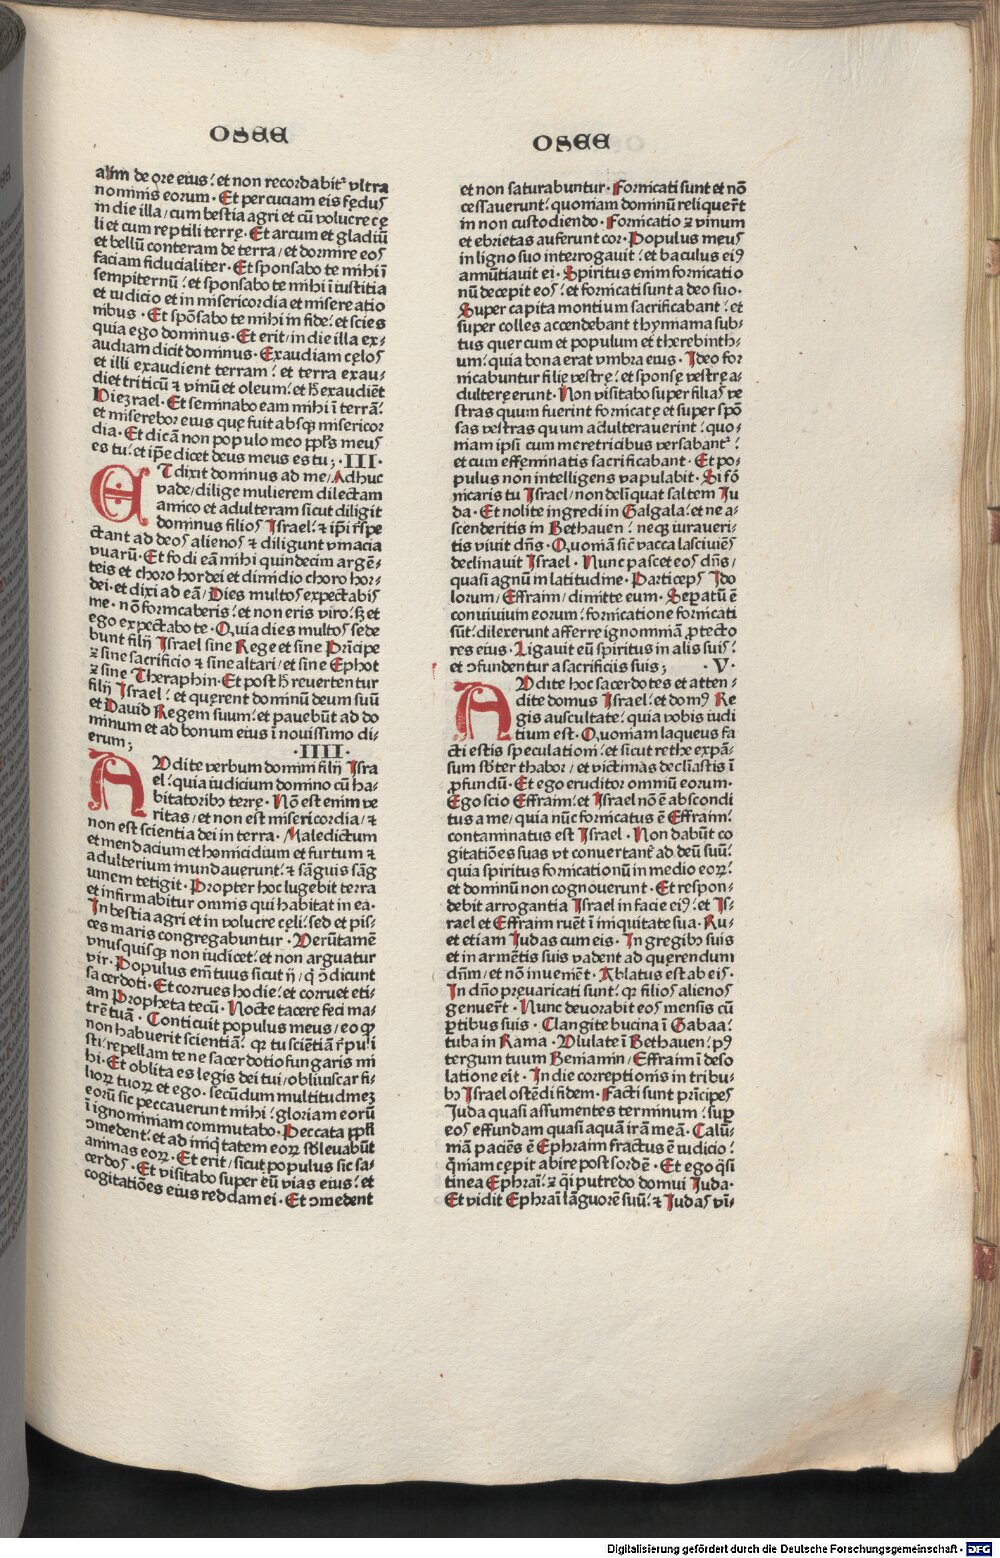 OSEE
alim de ore eius: et non recordabit᷑ vltra
nominis eorum · Et percuciam eis fędus
in die illa / cum bestia agri et cū volucre cę
li et cum reptili terrę · Et arcum et gladiū
et bellū conteram de terra / et dormire eos
faciam fiducialiter · Et sponsabo te mihi ī
sempiternū: et sponsabo te mihi ī iustitia
et iudicio et in misericordia et misere atio
nibus · Et spōsabo te mihi in fide: et scies
quia ego dominus · Et erit / in die illa ex⸗
audiam dicit dominus · Exaudiam cęlos
et illi exaudient terram: et terra exau⸗
diet triticū ⁊ vinū et oleum: et h̄ exaudiēt
Diezrael · Et seminabo eam mihi ī terrā:
et miserebor eius que fuit absqꝫ misericor
dia · Et dicā non populo meo ppl̄s meus
es tu: et ip̄e dicet deus meus es tu; · III ·
ET dixit dominus ad me / Adhuc
vade / dilige mulierem dilectam
amico et adulteram sicut diligit
dominus filios Israel: ⁊ ip̄i r̄spe
ctant ad deos alienos ⁊ diligunt vinacia
vuarū · Et fodi eā mihi quindecim argē⸗
teis et choro hordei et dimidio choro hor⸗
dei · et dixi ad eā / Dies multos expectabis
me · nō fornicaberis: et non eris viro: sꝫ et
ego expectabo te · Quia dies multos sede
bunt filij Israel sine Rege et sine Prīcipe
⁊ sine sacrificio ⁊ sine altari / et sine Ephot
⁊ sine Theraphin · Et post h̄ reuertentur
filij Israel: et quęrent dominū deum suū
et Dauid Regem suum: et pauebūt ad do
minum et ad bonum eius ī nouissimo di⸗
erum; · IIII ·
AVdite verbum domini filij Isra
el: quia iudicium domino cū ha⸗
bitatoribꝫ terrę · Nō est enim ve
ritas / et non est misericordia / ⁊
non est scientia dei in terra · Maledictum
et mendacium et homicidium et furtum ⁊
adulterium inundauerunt: ⁊ sāguis sāg
uinem tetigit · Propter hoc lugebit terra
et infirmabitur omnis qui habitat in ea ·
In bestia agri et in volucre cęli: sed et pis⸗
ces maris congregabuntur · Verūtamē
vnusquisqꝫ non iudicet: et non arguatur
vir · Populus em̄ tuus sicut ij / q̄ ↄdicunt
sacerdoti · Et corrues hodie: et corruet eti⸗
am Propheta tecū · Nocte tacere feci ma⸗
trē tuā · Conticuit populus meus / eo qꝫ
non habuerit scientiā: qꝫ tu sciētiā r̄puli
sti: repellam te ne sacerdotio fungaris mi
hi · Et oblita es legis dei tui / obliuiscar fi⸗
lioꝝ tuoꝝ et ego · secūdum multitudinez
eorū sic peccauerunt mihi: gloriam eorū
ī ignominiam commutabo · Peccata ppl̄i
ↄmedent: et ad iniq̇tatem eoꝝ sb̄leuabūt
animas eoꝝ · Et erit / sicut populus sic sa⸗
cerdos · Et visitabo super eū vias eius: et
cogitatiōes eius reddam ei · Et ↄmedent
OSEE
et non saturabuntur · Fornicati sunt et nō
cessauerunt: quoniam dominū reliquer̄t
in non custodiendo · Fornicatio ⁊ vinum
et ebrietas auferunt cor · Populus meus
in ligno suo interrogauit: et baculus eiꝰ
annūtiauit ei · Spiritus enim fornicatio
nū decepit eos: et fornicati sunt a deo suo ·
Super capita montium sacrificabant: et
super colles accendebant thymiama sub⸗
tus quercum et populum et therebinth⸗
um: quia bona erat vmbra eius · Ideo for
nicabuntur filię vestrę: et sponsę vestrę a⸗
dulterę erunt · Non visitabo super filias ve
stras quum fuerint fornicatę et super spō
sas vestras quum adulterauerint: quo⸗
niam ipsi cum meretricibus versabant᷑:
et cum effęminatis sacrificabant · Et po⸗
pulus non intelligens vapulabit · Si fō
nicaris tu Israel / non delīquat saltem Iu
da · Et nolite ingredi in Galgala: et ne a⸗
scenderitis in Bethauen: neqꝫ iuraueri⸗
tis viuit dn̄s · Quoniā sic̄ vacca lasciuiēs
declinauit Israel · Nunc pascet eos dn̄s /
quasi agnū in latitudine · Particeps Ido
lorum / Effraim / dimitte eum · Sepatū ē
conuiuium eorum: fornicatione fornicati
sūt: dilexerunt afferre ignominiā ꝓtecto
res eius · Ligauit eū spiritus in alis suis:
et ↄfundentur a sacrificiis suis; · V ·
AVdite hoc sacerdotes et atten⸗
dite domus Israel: et domꝰ Re
gis auscultate: quia vobis iudi
tium est · Quoniam laqueus fa
cti estis speculationi: et sicut rethe expā⸗
sum sb̄ter thabor / et victimas declīastis ī
ꝓfundū · Et ego eruditor omniū eorum ·
Ego scio Effraim: et Israel nō ē abscondi
tus a me / quia nūc fornicatus ē Effraim:
contaminatus est Israel · Non dabūt co
gitatiōes suas vt conuertant᷑ ad deū suū:
quia spiritus fornicationū in medio eoꝝ:
et dominū non cognouerunt · Et respon⸗
debit arrogantia Israel in facie eiꝰ: et Is⸗
rael et Effraim ruēt ī iniquitate sua · Ru⸗
et etiam Iudas cum eis · In gregibꝫ suis
et in armētis suis vadent ad quęrendum
dn̄m / et nō inueniēt · Ablatus est ab eis ·
In dn̄o pręuaricati sunt: qꝫ filios alienos
genuer̄t · Nunc deuorabit eos mensis cū
ꝑtibus suis · Clangite bucina ī Gabaa:
tuba in Rama · Vlulate ī Bethauen: pꝰ
tergum tuum Beniamin / Effraim ī deso
latione eīt · In die correptionis in tribu⸗
bꝫ Israel ostēdi fidem · Facti sunt prīcipes
Iuda quasi assumentes terminum: sup̄
eos effundam quasi aquā irā meā · Calū⸗
niā paciēs ē Ephraim fractus ē iudicio:
q̄niam cępit abire post sordē · Et ego q̄si
tinea Ephraī: ⁊ q̄i putredo domui Iuda ·
Et vidit Ephraī lāguorē suū: ⁊ Iudas vī⸗
Digitalisierung gefördert durch die Deutsche Forschungsgemeinschaft - DFG